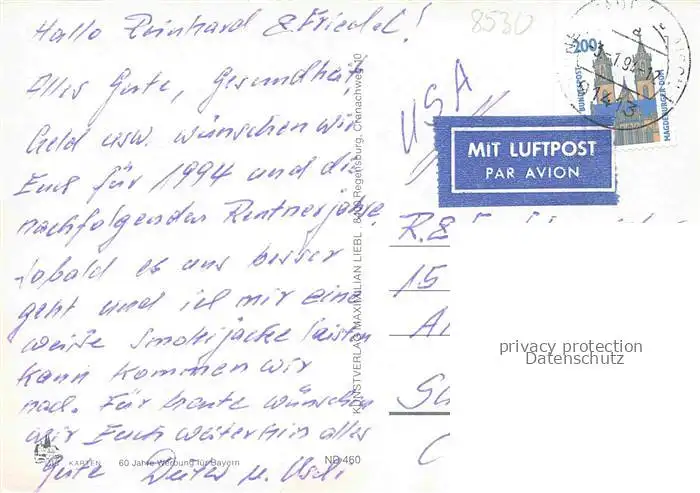 Hallo Reinhard & Friedel!
Alles Gute, Gesundheit,
Geld usw. wünschen wir
Euch für 1994 und die
nachfolgenden Rentnerjahre.
Sobald es uns besser
geht und ich mir eine
weiße Smokijacke leisten
kann kommen wir
nach. Für heute wünschen
wir Euch weiterhin alles
Gute Dieter u. Uschi
KARTEN 60 Jahre Werbung für Bayern ND 460
KUNSTVERLAG MAXIMILIAN LIEBL, Regensburg, Cranachweg 10
8530
USA
200
BUNDESPOST
MAGDEBURGER DOM
MIT LUFTPOST
PAR AVION
R. &
15
privacy protection
Datenschutz